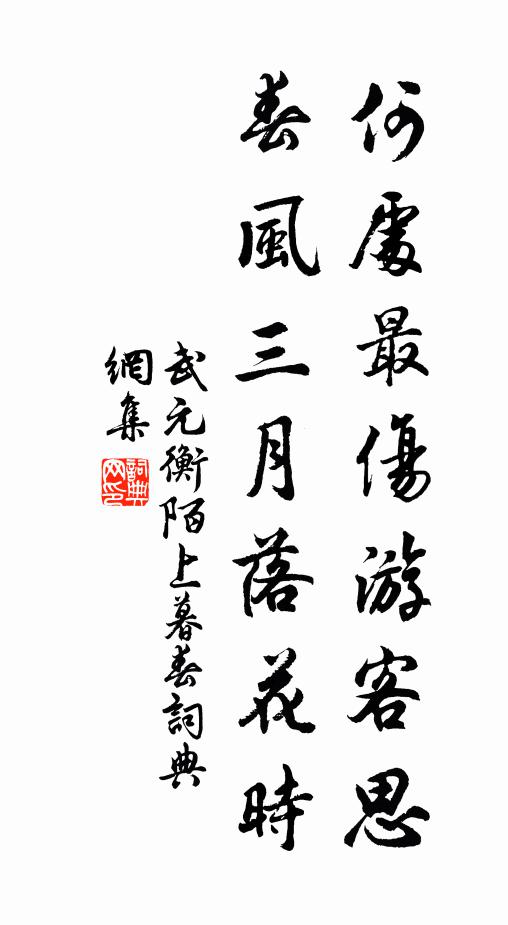 何處最傷游客思
春風三月落花時
武元衡陌上暮春詞典
網集
詞典
网印